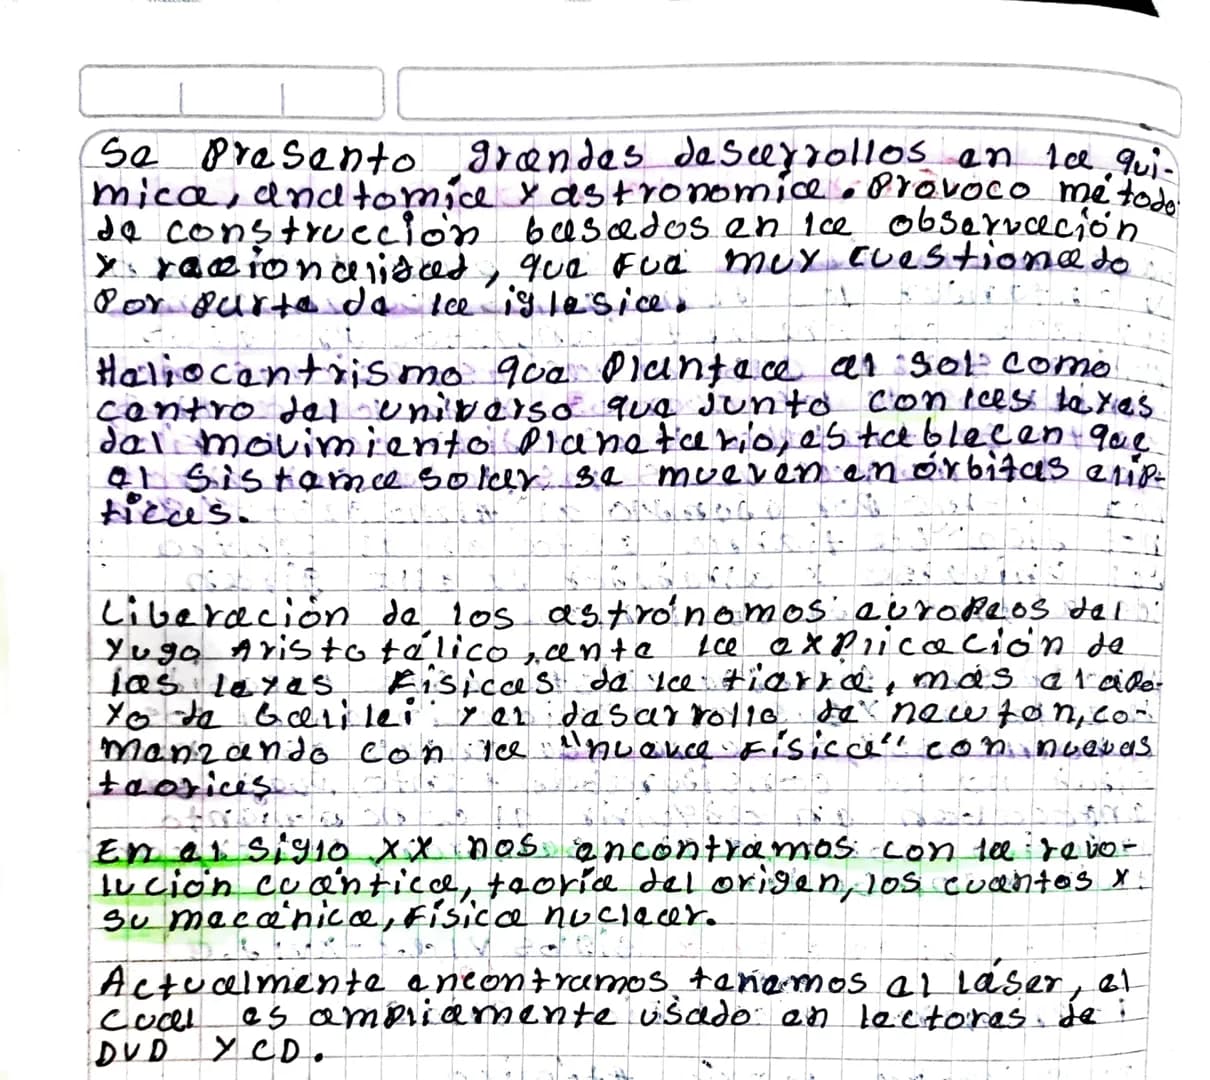 Se presento grandes desarrollos en la quí-
mica, anatomía y astronomica. Provoco método
de construcción basados en la observación
y racionalidad, que fue muy cuestionado
por parte de la iglesia.
Heliocentrismo que plantea al sol como
centro del universo que junto con las leyes
del movimiento planetario, establecen que
el sistema solar se mueven en órbitas elíp-
ticas.
Liberación de los astrónomos europeos del
yugo Aristotélico, ante la explicación de
las leyes Físicas de la tierra, más el apo-
yo de Galilei y el desarrollo de newton, co-
menzando con la "nueva Física" con nuevas
teorías
En el siglo XX nos encontramos con la revo-
lución cuántica, teoría del origen, los cuantos y
su mecánica, Física nuclear.
Actualmente encontramos tenemos al láser, el
cual es ampliamente usado en lectores de
DVD y CD.